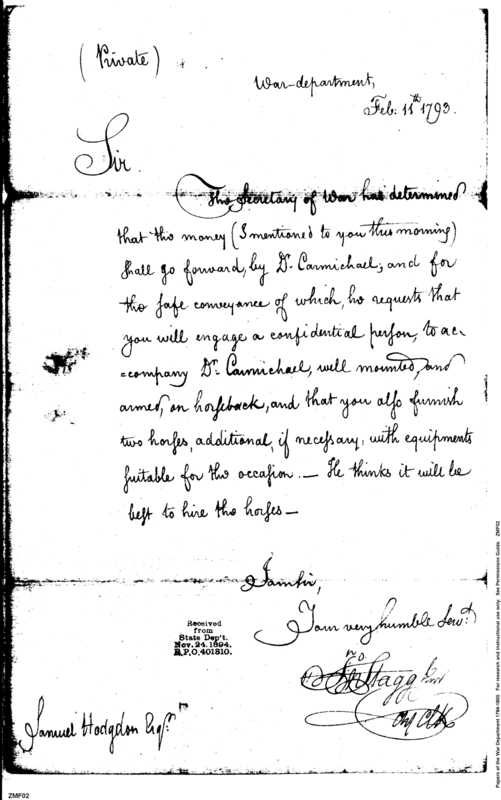 (Private)
War-department,
Feb. 11th 1793.
Sir.
The Secretary of War has determined
that the money (I mentioned to you this morning)
shall go forward, by Dr. Carmichael; and for
the safe conveyance of which, he requests that
you will engage a confidential person, to ac-
=company Dr. Carmichael, well mounted, and
armed, on horseback, and that you also furnish
two horses, additional, if necessary, with equipments
suitable for the occasion. — He thinks it will be
best to hire the horses —
I am sir,
I am very humble Servt.
Jno Stagg Junr
Chf Clk
Received
from
State Dep't.
Nov. 24. 1894.
R.P.O. 401810.
Samuel Hodgdon Esqr.
ZMF02
Papers of the War Department 1784-1800. For research and instructional use only. See Permissions Guide. ZMF02